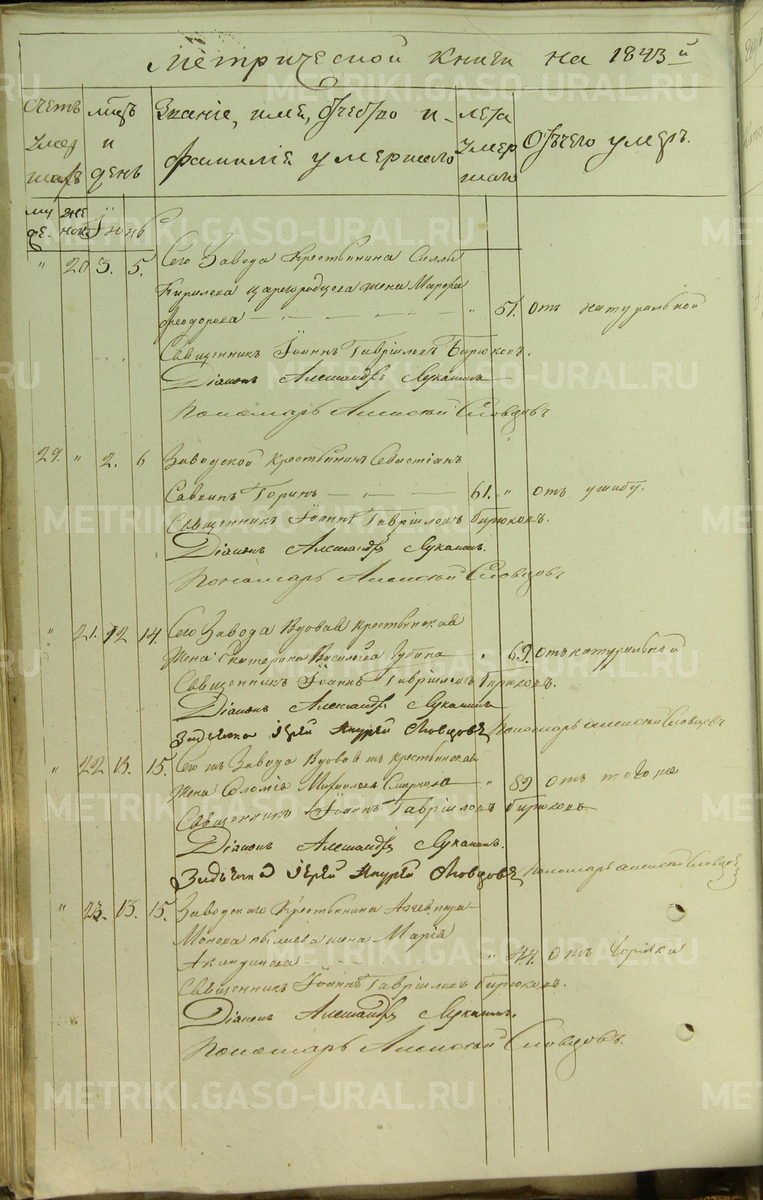 Метрической книги на 1843й
Счетъ умершихъ
мѣсяцъ и день
Званіе, имя, отчество и фамилія умершаго
лета умершаго
Отъ чего умеръ.
муже. женск Іюнь
" 20 3. 5. Сего Завода Крестьянина Силы
Кирилова Царегородцева жена Марфа
Феодорова " 51. отъ натуральной
Священникъ Іоаннъ Гавріиловъ Бирюковъ.
Діаконъ Александръ Лукани​нъ
Пономарь Алексій Словцовъ
29. " 2. 6 Заводской крестьянинъ Севастіанъ
Саввинъ Горинъ 61. " отъ ушибу.
Священникъ Іоаннъ Гавріиловъ Бирюковъ.
Діаконъ Александръ Луканинъ.
Пономарь Алексій Словцовъ
" 21. 12 14. Сего Завода Вдовая крестьянская
жена Екатерина Васильева Зубина " 69. отъ натуральной
Священникъ Іоаннъ Гавріиловъ Бирюковъ.
Діаконъ Александръ Луканинъ
Іерей Андрей Словцовъ Пономарь Алексій Словцовъ
" 22 13. 15. Сего жъ Завода Вдовая жъ крестьянская
жена Соломія Михайлова Смирнова " 89 отъ того же
Священникъ Іоаннъ Гавріиловъ Бирюковъ
Діаконъ Александръ Луканинъ.
Іерей Андрей Словцовъ Пономарь Алексій Словцовъ
" 23. 13. 15. Заводского Крестьянина
жена Марія
Акиндинова " 44. отъ
Священникъ Іоаннъ Гавріиловъ Бирюковъ.
Діаконъ Александръ Луканинъ.
Пономарь Алексій Словцовъ.
METRIKI.GASO-URAL.RU